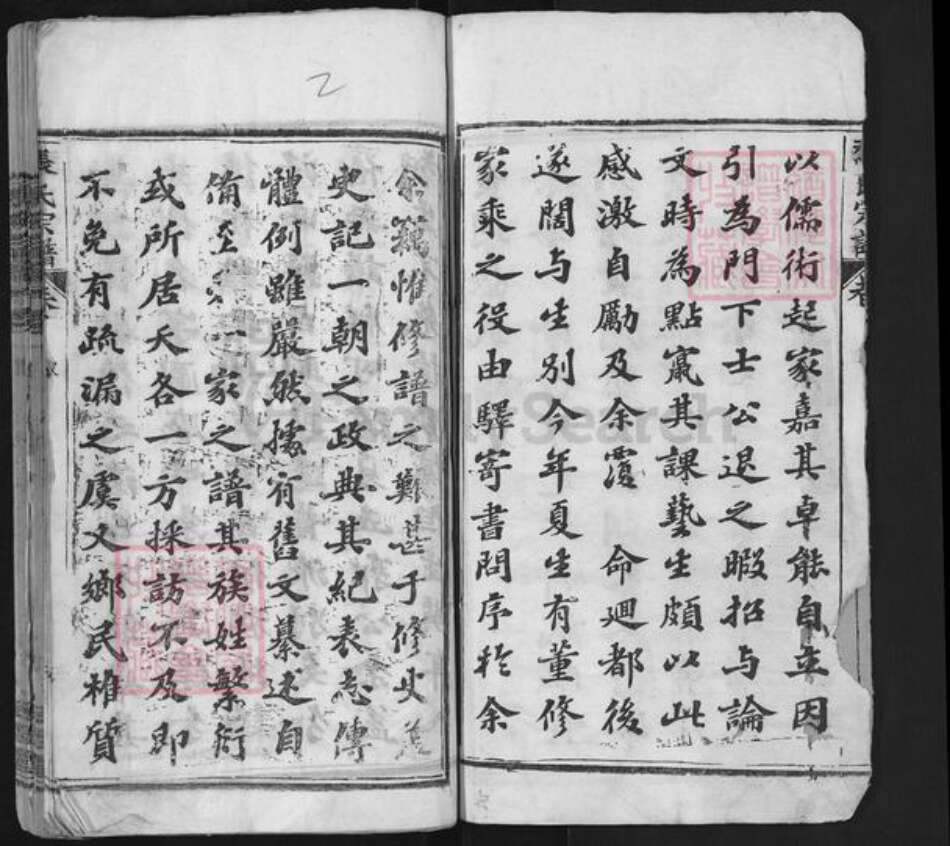 以儒術起家嘉其卓能自立因
引為門下士公退之暇招与論
文時為點竄其課藝生頗以此
感激自勵及余覆 命迴都後
遂闊与生別今年夏生有董修
家乘之役由驛寄書問序於余
余竊惟修譜之難甚于修史蓋
史記一朝之政典其紀表志傳
體例雖嚴然據有舊文纂述自
備至 一家之譜其族姓繁衍
或所居天各一方採訪不及即
不免有疏漏之虞又鄉民椎質
氏宗譜
2